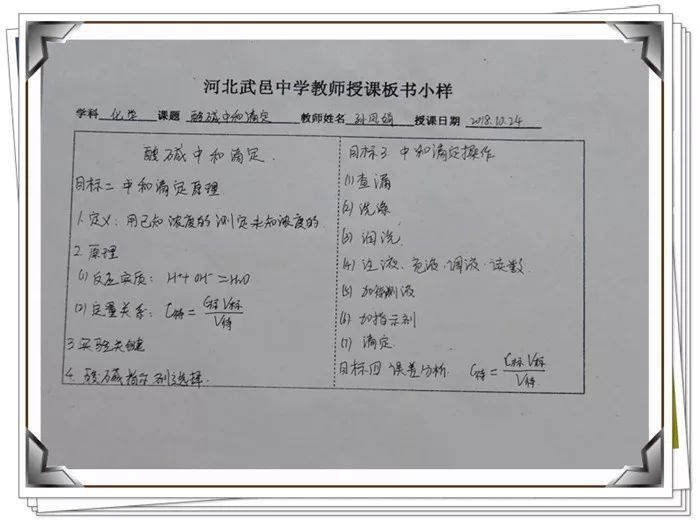 河北武邑中学教师授课板书小样
学科 化学 课题 酸碱中和滴定 教师姓名 孙凤娟 授课日期 2018.10.24
酸碱中和滴定.
目标二 中和滴定原理
1.定义:用已知浓度的测定未知浓度的
2.原理
(1)反应实质: H⁺+OH⁻=H₂O
(2)定量关系: C待=C标V标/V待
3.实验关键
4.酸碱指示剂选择.
目标3.中和滴定操作
(1)查漏
(2)洗涤
(3)润洗.
(4)注液、充液、调液、读数
(5)加待测液
(6)加指示剂
(7)滴定.
目标四 误差分析. C待=C标V标/V待